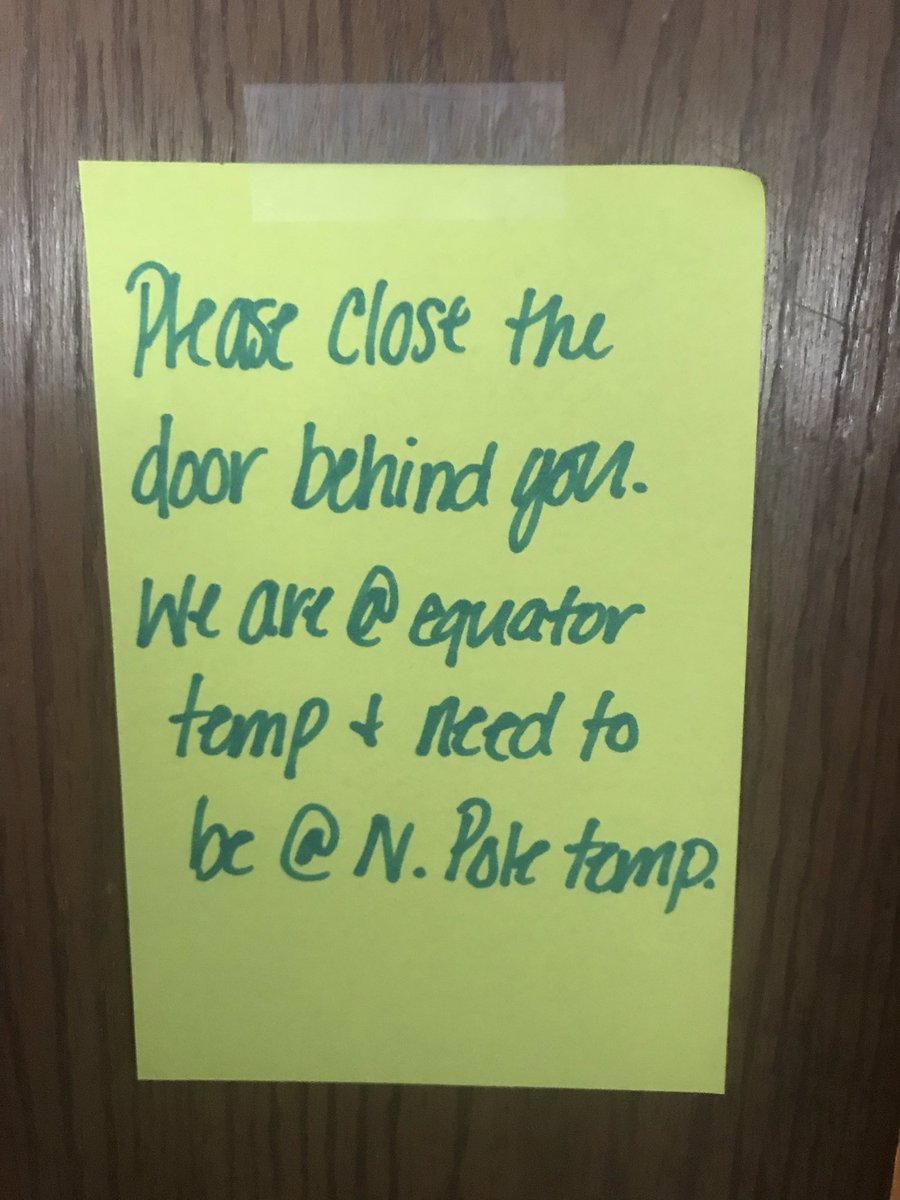 Please close the
door behind you.
We are @ equator
temp + need to
be @ N. Pole temp.